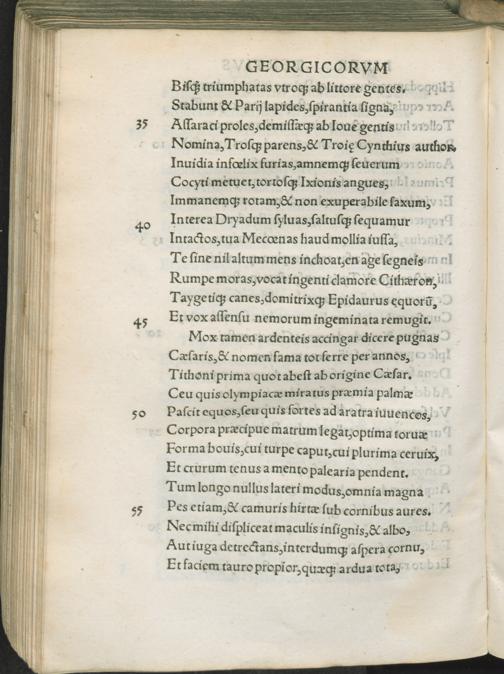 GEORGICORVM
Bisq; triumphatas vtroq; ab littore gentes.
Stabunt & Parij lapides, spirantia signa,
35 Assaraci proles, demissæq; ab Ioue gentis
Nomina, Trosq; parens, & Troię Cynthius author.
Inuidia infœlix furias, amnemq; seuerum
Cocyti metuet, tortosq; Ixionis angues,
Immanemq; rotam, & non exuperabile saxum,
40 Interea Dryadum syluas, saltusq; sequamur
Intactos, tua Mecœnas haud mollia iussa,
Te sine nil altum mens inchoat, en age segneis
Rumpe moras, vocat ingenti clamore Cithæron,
Taygetiq; canes, domitrixq; Epidaurus equorū,
45 Et vox assensu nemorum ingeminata remugit.
Mox tamen ardenteis accingar dicere pugnas
Cæsaris, & nomen fama tot ferre per annos,
Tithoni prima quot abest ab origine Cæsar.
Ceu quis olympiacæ miratus præmia palmæ
50 Pascit equos, seu quis fortes ad aratra iuuences,
Corpora præcipue matrum legat, optima toruæ
Forma bouis, cui turpe caput, cui plurima ceruix,
Et crurum tenus a mento palearia pendent.
Tum longo nullus lateri modus, omnia magna
55 Pes etiam, & camuris hirtæ sub cornibus aures.
Nec mihi displiceat maculis insignis, & albo,
Aut iuga detrectans, interdumq; aspera cornu,
Et faciem tauro propior, quæq; ardua tota,